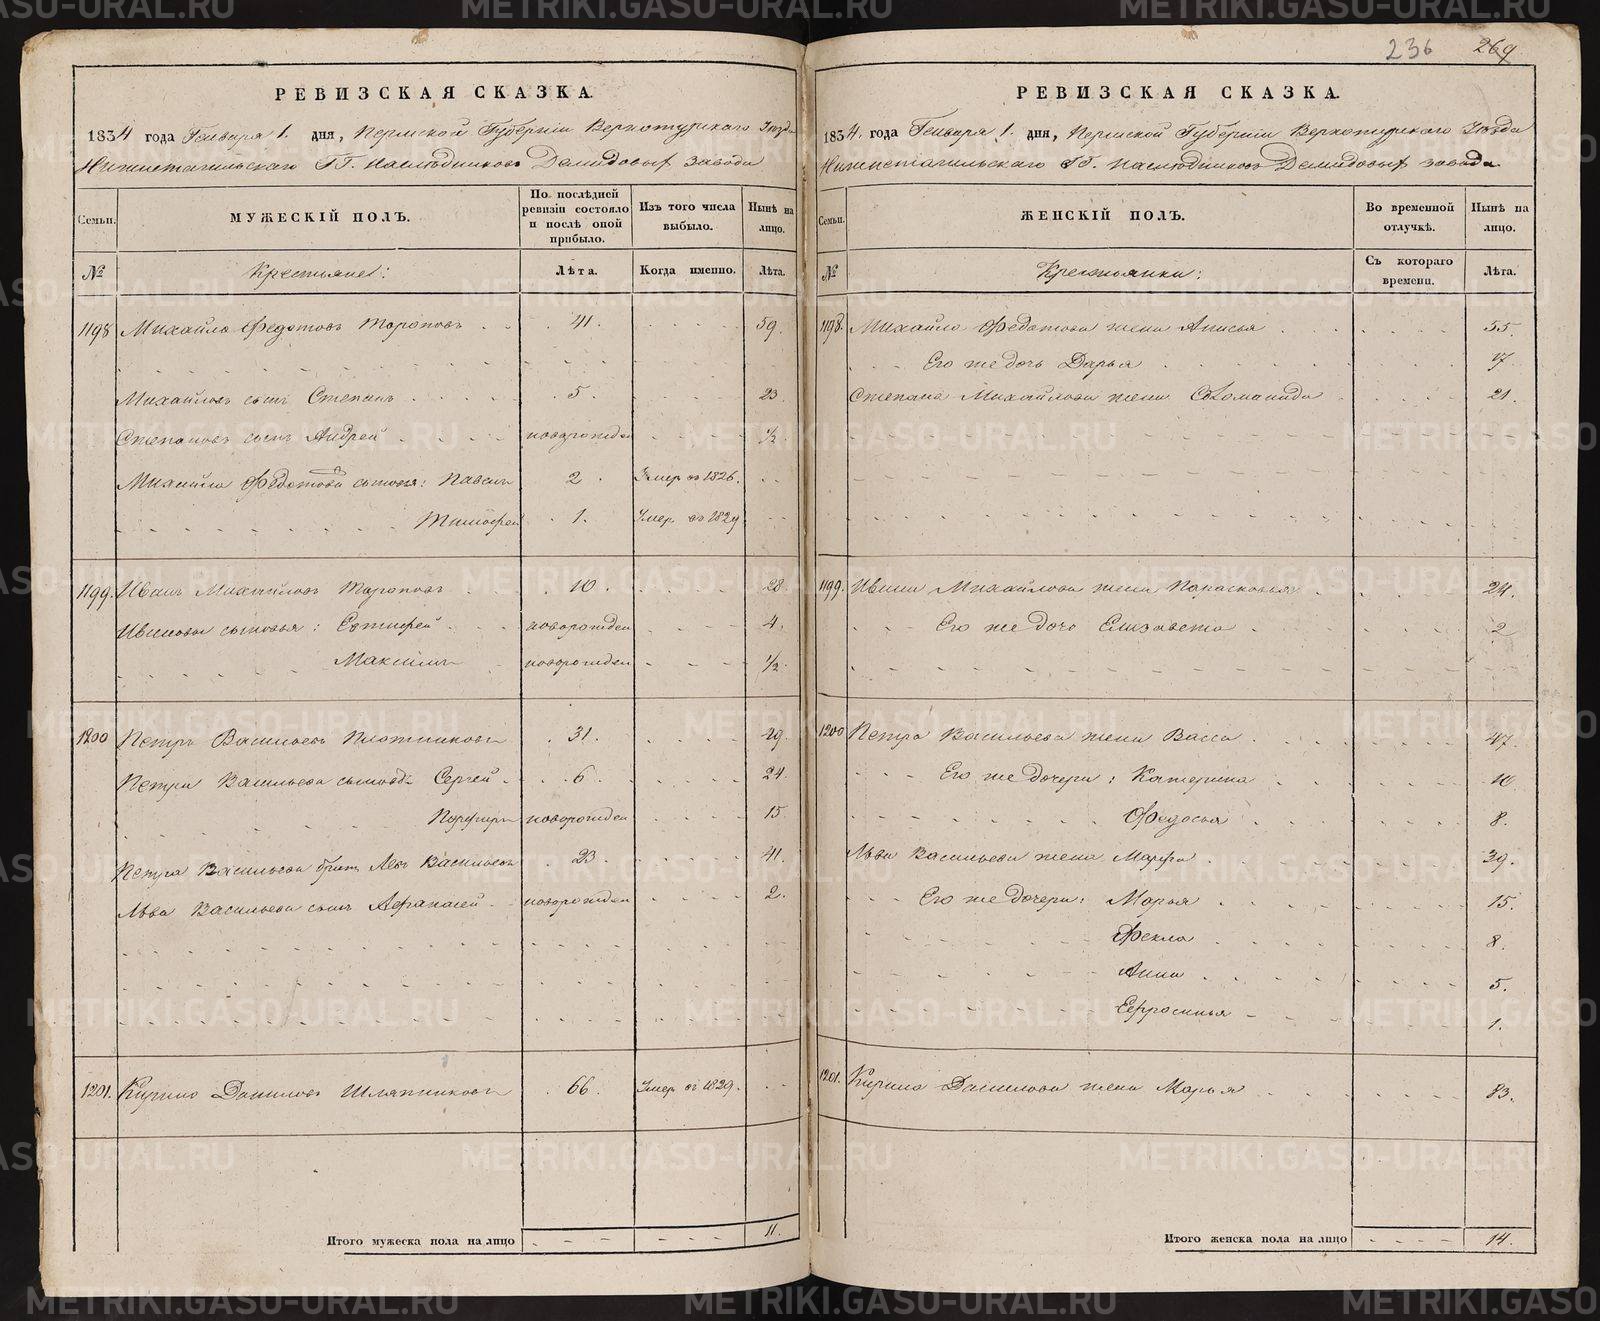 236 269
РЕВИЗСКАЯ СКАЗКА.
1834 года Генваря 1. дня, Пермской Губерніи Верхотурскаго Уезда
Нижнетагильскаго Г.Г. Наследниковъ Демидовыхъ завода
Семьи. МУЖЕСКІЙ ПОЛЪ. По последней ревизіи состояло и после оной прибыло. Изъ того числа выбыло. Ныне на лицо.
№ Крестьяне: Лета. Когда именно. Лета.
1198 Михайло Федотовъ Тороповъ 41. 59.
Михайловъ сынъ Степанъ 5. 23
Степановъ сынъ Андрей новорожден ½.
Михайла Федотова сыновья: Павелъ 2. Умер въ 1826.
Тимофей 1. Умер въ 1829
1199. Иванъ Михайловъ Тороповъ 10. 28.
Ивановы сыновья: новорожден 4.
Максимъ новорожден ½.
1200 Петръ Васильевъ Плотниковъ 31. 29.
Петра Васильева сыновья Сергей 6. 24
Порфиръ новорожден 15.
Петра Васильева братъ Левъ Васильевъ 23. 41.
Льва Васильева сынъ Афанасей новорожден 2.
1201. Кирило Даниловъ Шляпниковъ 66. Умер въ 1829.
Итого мужеска пола на лицо 11.
РЕВИЗСКАЯ СКАЗКА.
1834. года Генваря 1. дня, Пермской Губерніи Верхотурскаго Уезда
Нижнетагильскаго Г.Г. Наследниковъ Демидовыхъ завода
Семьи. ЖЕНСКІЙ ПОЛЪ. Во временной отлучке. Ныне на лицо.
№ Крестьянки: Съ котораго времени. Лета.
1198. Михайла Федотова жена Анисья 55.
Его же дочь Дарья 7.
Степана Михайлова жена Соломанида 21.
1199. Ивана Михайлова жена Парасковья 24.
Его же дочь Елизавета 2
1200 Петра Васильева жена Васса 47.
Его же дочери: Катерина 10
Федосья 8.
Льва Васильева жена Марфа 39.
Его же дочери: Марья 15.
Фекла 8.
Анна 5.
Ефросинья 1.
1201. Кирила Данилова жена Марья 83.
Итого женска пола на лицо 14.
METRIKI.GASO-URAL.RU